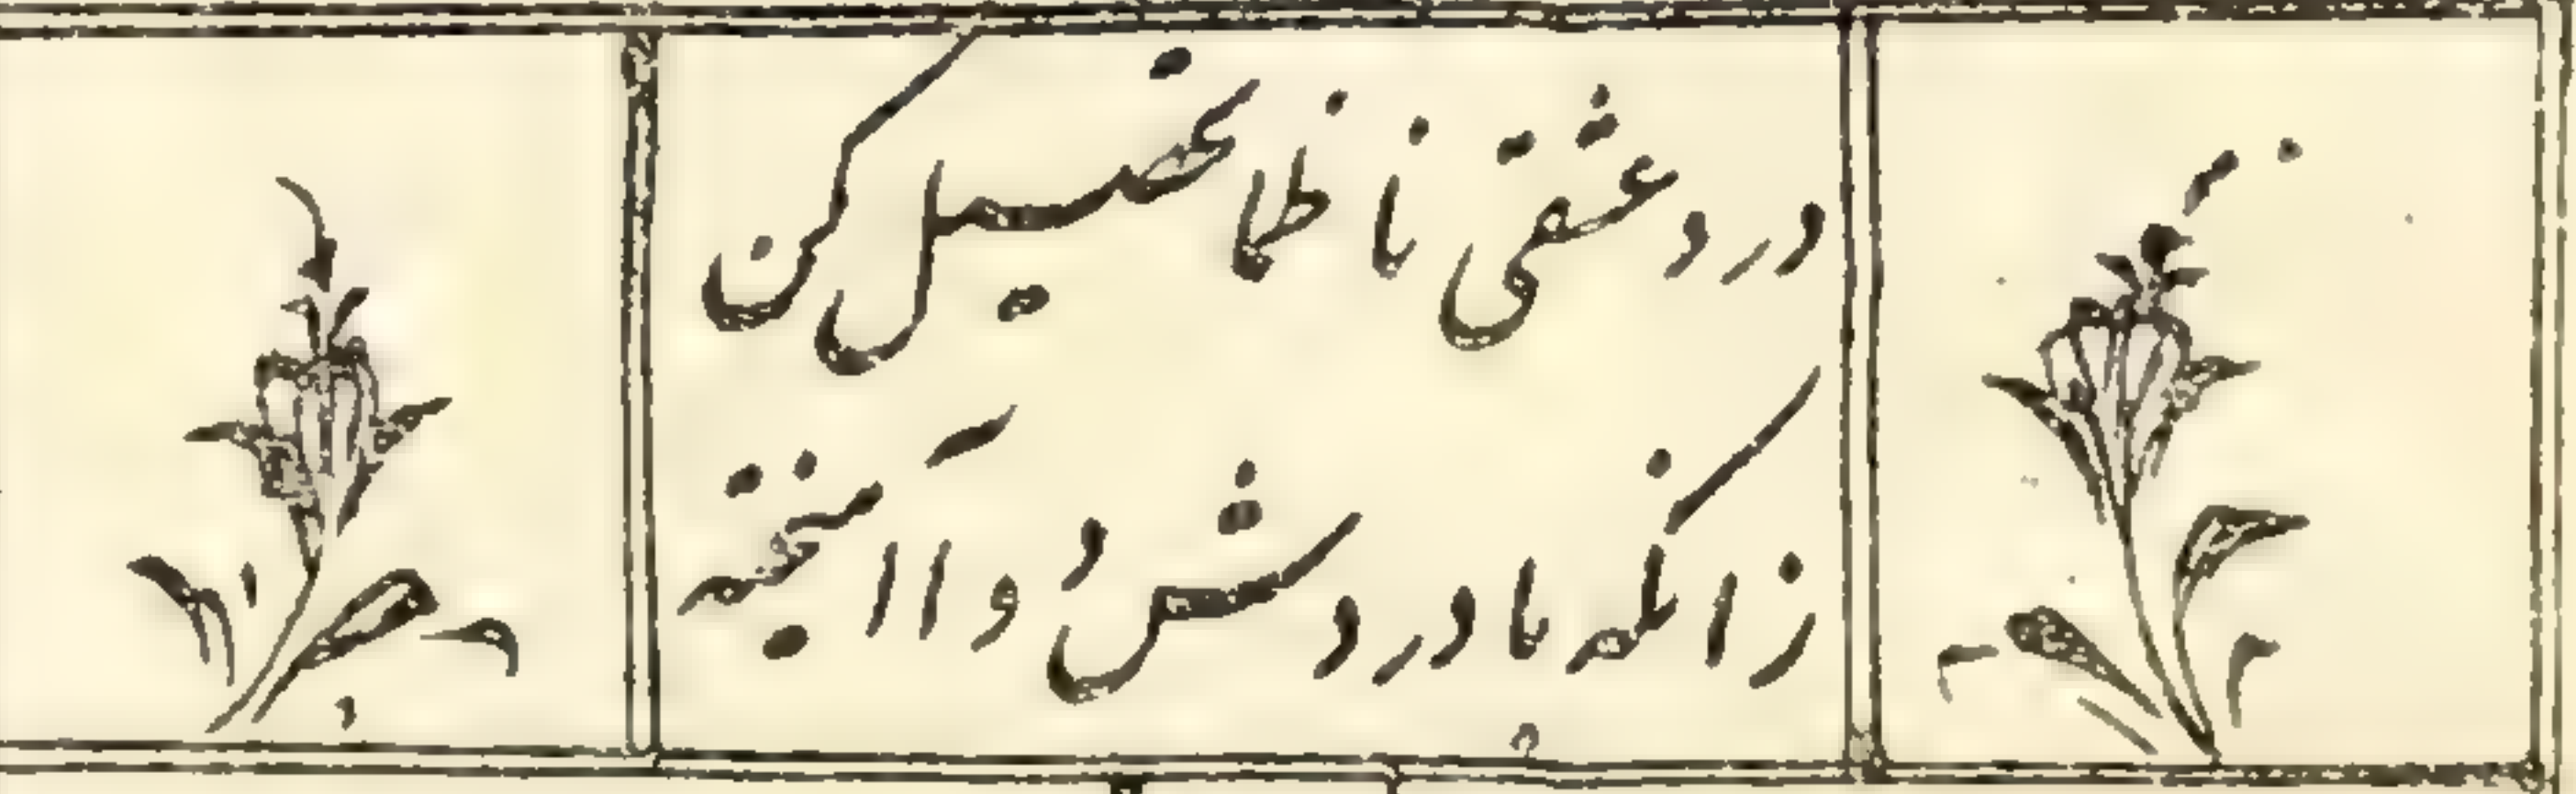 درد عشقی ناظما تحصیل کن
زانکه با دردش دوا آمیخته